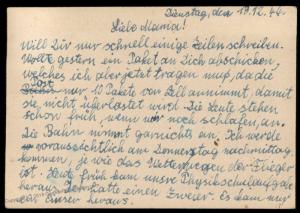 Dienstag, den 19.12.44.
Liebe Mama!
Will Dir nur schnell einige Zeilen schreiben.
Wollte gestern ein Paket an Dich abschicken,
welches ich aber jetzt tragen muß, da die
Post
nur 10 Pakete von Zell annimmt, damit
sie nicht überlastet wird. Die Leute stehen
schon früh, wenn wir noch schlafen, an.
Die Bahn nimmt garnichts an. Ich werde
voraussichtlich am Donnerstag nachmittag
kommen, je wie das Wetter wegen der Flieger
ist. Heute früh kam unsre Physikschulaufgabe
heraus. Ich hatte einen Zweier. Es kam nur
ein Einser heraus.